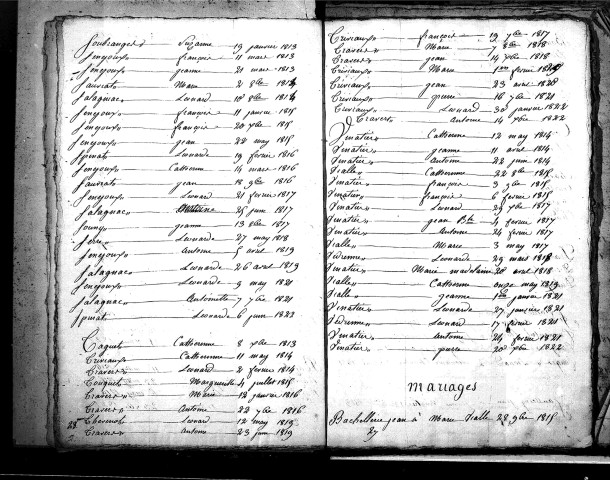 Soubranges Suzanne 19 janvier 1813
Sengoux françois 11 mars 1813
Sengoux jeanne 21 mars 1813
Saurat Marie 2 8bre 1814
Salagnac Leonard 10 8bre 1814
Sengoux françois 11 janvier 1815
Sengoux françois 20 xbre 1815
Sengoux jean 22 may 1815
Spinat Leonarde 19 fevrier 1816
Sengoux Catherinne 14 mars 1816
Saurat jean 18 9bre 1816
Sengoux Leonard 21 fevrier 1817
Salagnac 25 juin 1817
jeanne 13 8bre 1817
Leonarde 27 may 1818
Sengoux Antoine 5 avril 1819
Salagnac Leonarde 26 avril 1819
Sengoux Leonarde 9 may 1821
Salagnac Antoinette 7 7bre 1821
Spinat Leonarde 6 juin 1822
Taguet Catherinne 8 xbre 1813
Catherinne 11 may 1814
Travers Leonard 2 fevrier 1814
Touquet Marguerite 4 juillet 1815
Travers Marie 12 janvier 1816
Travers Antoine 22 7bre 1816
Leonard 12 may 1819
Travers Antoine 23 juin 1819
28
françois 19 7bre 1817
Travers Marie 7 8bre 1818
Travers jean 14 xbre 1818
Marie 1er fevrier 1819
jean 23 avril 1820
pierre 16 xbre 1821
Leonard 30 janvier 1822
Travers Antoine 14 xbre 1822
Vinatier Catherinne 12 may 1814
Vinatier jeanne 11 avril 1814
Vinatier Antoine 22 juin 1814
Vialle Catherinne 22 8bre 1815
Vinatier françoise 3 9bre 1815
Vinatier françois 6 fevrier 1815
Vinatier Leonard 29 xbre 1817
Vinatier jean Bte 4 fevrier 1817
Vinatier Antoine 24 fevrier 1817
Vialle Marie 3 may 1817
Vedrenne Leonarde 29 mars 1818
Vinatier Marie madelaine 20 avril 1818
Vialle Catherinne onze may 1819
Vialle jeanne 1er janvier 1821
Vinatier Leonarde 27 janvier 1821
Vedrenne Leonard 17 fevrier 1821
Vinatier Antoine 24 fevrier 1821
Vinatier pierre 20 xbre 1822
Mariages
Bachellerie jean à Marie Vialle 28 9bre 1815
27